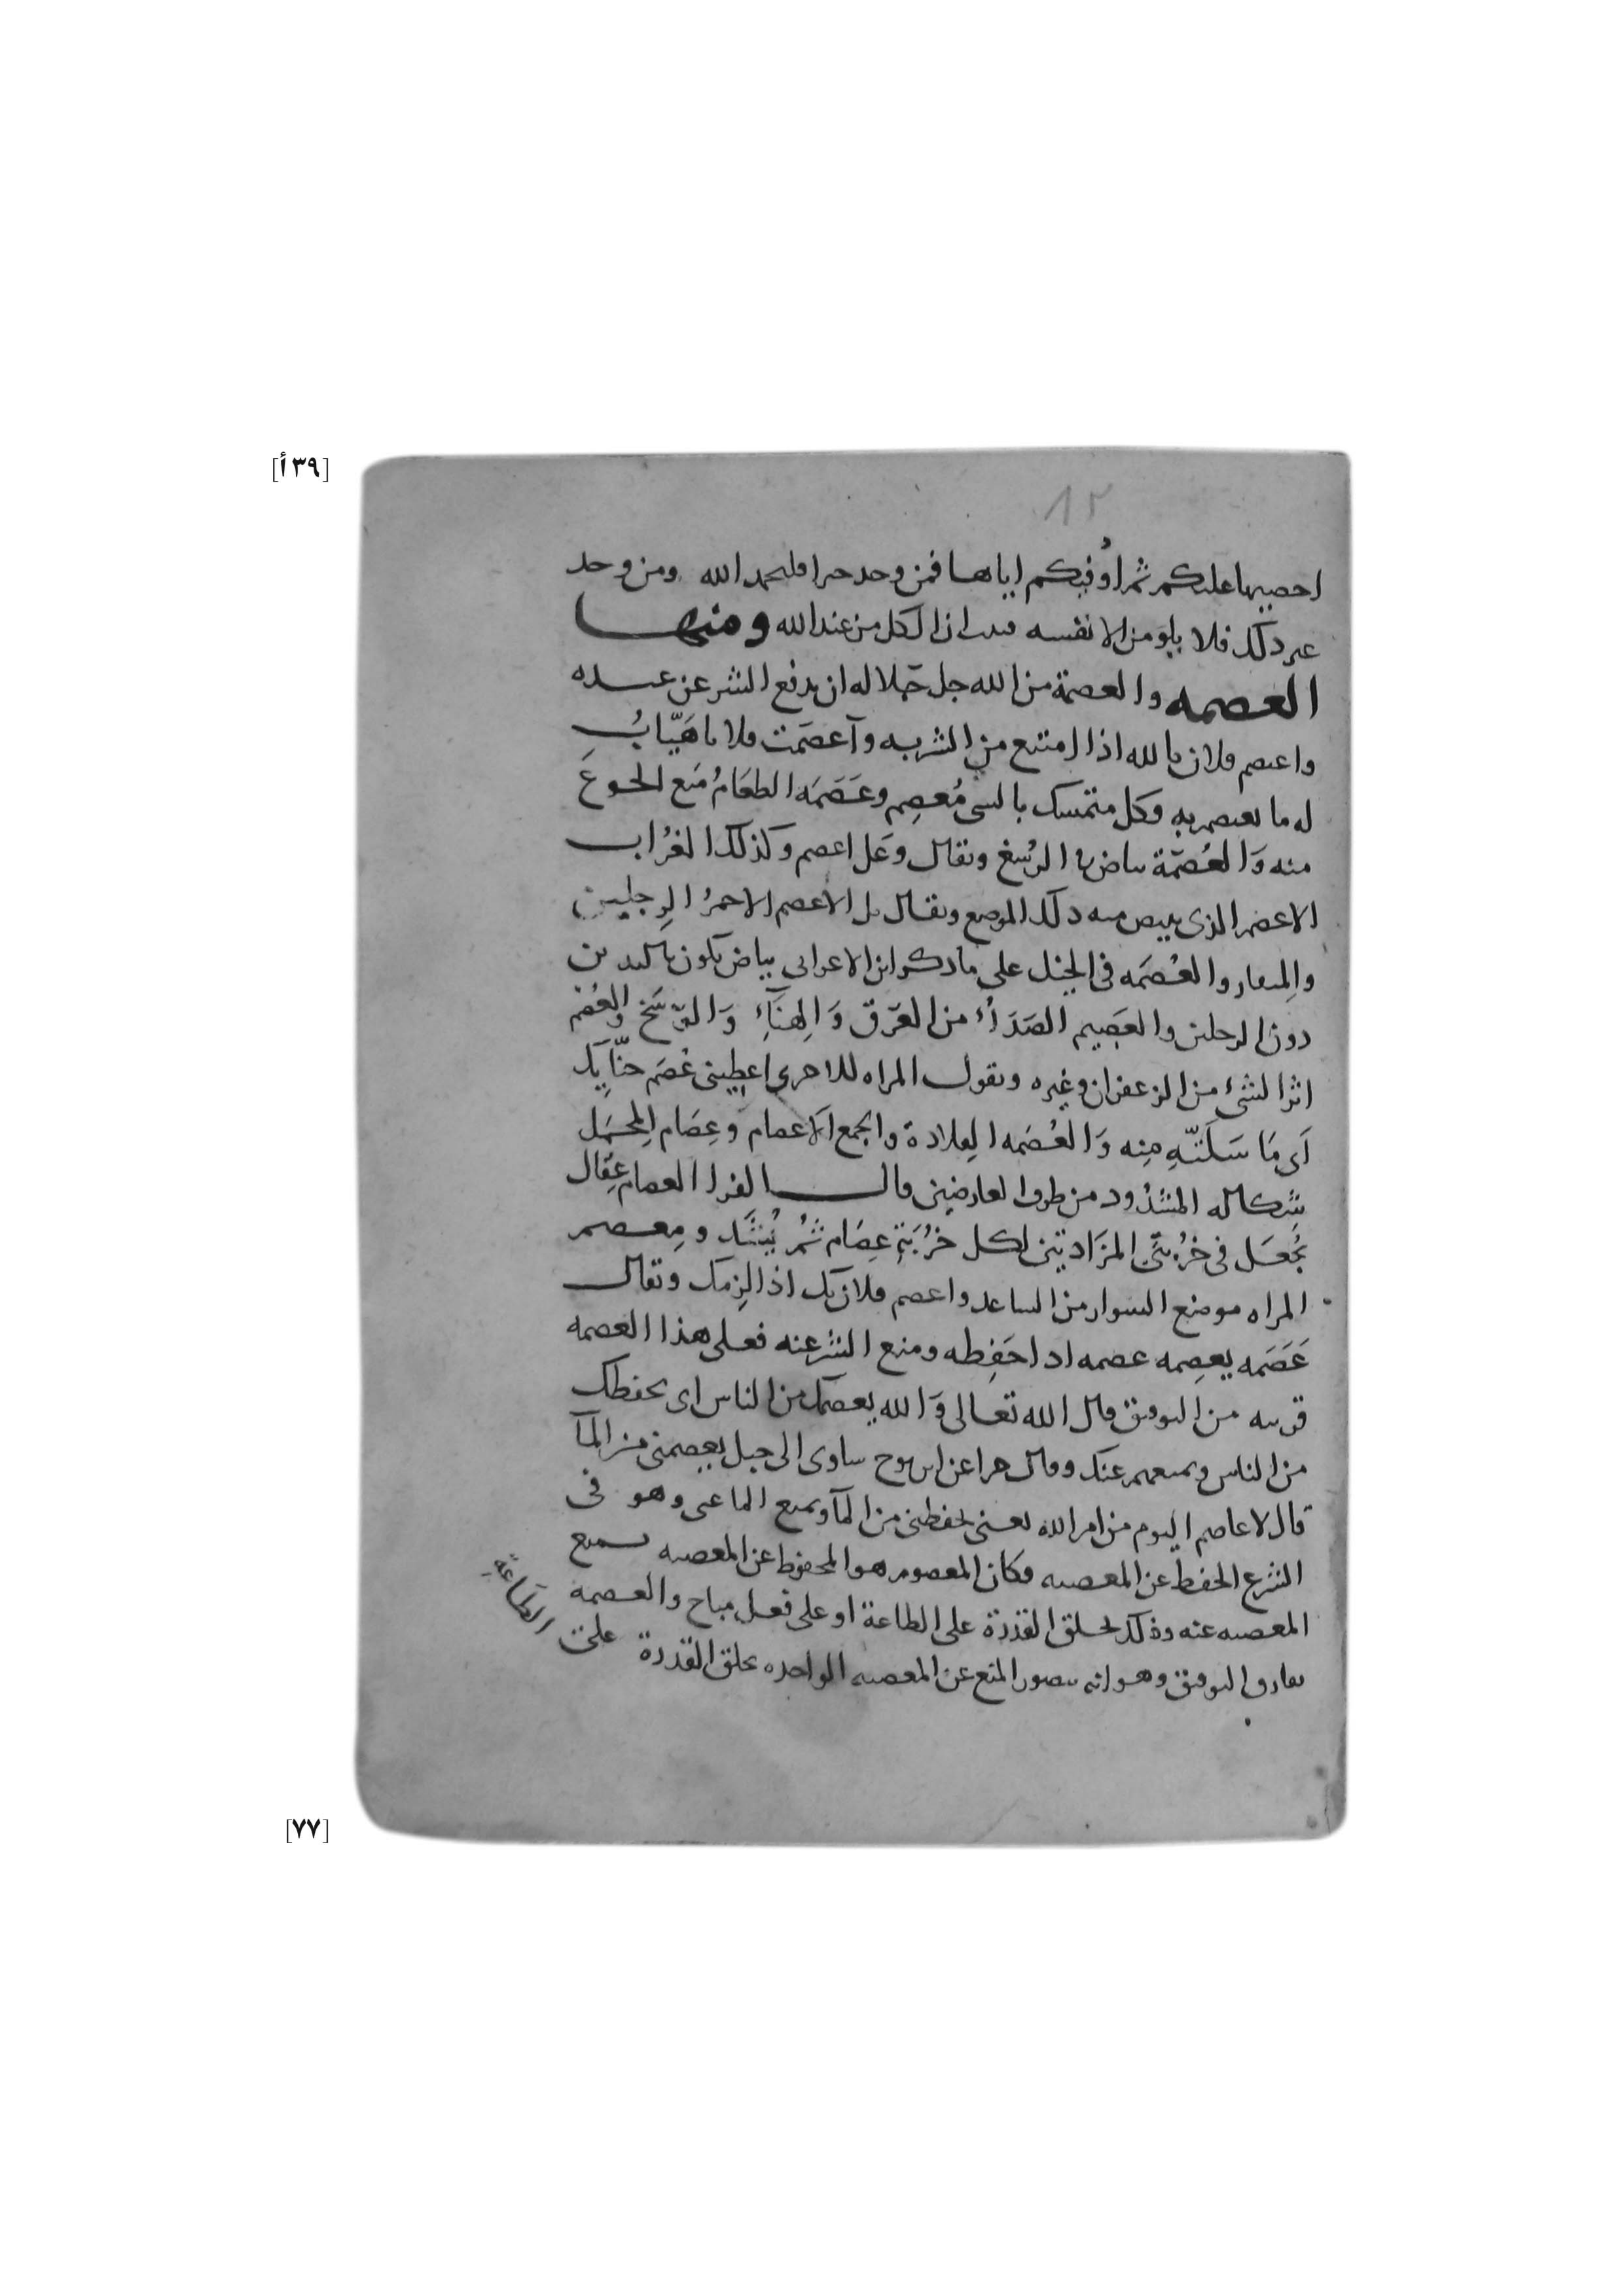 [٣٩أ]
١٢
احصيها عليكم ثم اُوفيكم اياها فمن وجد خيرا فليحمد الله ومن وجد
غير ذلك فلا يلومن الا نفسه فبين ان الكل من عند الله ومنها
العصمه والعصمة من الله جل جلاله ان يدفع الشر عن عبده
واعتصم فلان بالله اذا امتنع من الشر به وأعصَمت فلانا هَيّأتُ
له ما يعتصم به وكل متمسك بالشى مُعصِم وعَصَمَه الطعَامُ مَنع الجوعَ
منه وَالعُصمَة بياض فى الرُسغ ويقال وَعَل اعصم وكذلك الغُراب
الاعصم الذى يبيض منه ذلك الموضع ويقال بل الاعصم الاحمرُ الرِجليين
والمِنقار والعُصمَه فى الخيل على ما ذكر ابن الاعرابى بياض يكون باليدين
دون الرجلين والعَصِيم الصَدَأُ من العَرَق وَالهِنَآءِ وَالوَسَخ والعُصْم
اثر الشىء من الزعفران وغيره وتقول المراه للاخرى اعطِينى عُصَم حنّائِك
اَى مَا سَلَتّهِ مِنه وَالعُصمَه القِلادة والجمع الاَعصام وَعِصَام المِحمَل
شِكاله المشدُود من طرف العارضين قال الفرا العصام عِقال
يُجعَل فى خُربَتَىِ المزَادتين لكل خُربَةٍ عِصَام ثُمَّ يُشَدّ ومِعصم
المراه موضع السوار من الساعد واعصم فلان بك اذا لزِمك ويقال
عَصَمَه يعصِمه عصمه اذا حَفِظه ومنع الشر عنه فعلى هذا العصمه
قريبه من التوفيق قال الله تعالى وَالله يعصمك من الناس اى يحفظك
من الناس ويمنعهم عنك وقال خبرا عن ابن نوح ساوى الى جبل يعصمنى من المآ
قال لا عاصم اليوم من امر الله يعنى يحفظنى من المآ ويمنع الما عنى وهو فى
الشرع الحفظ عن المعصيه فكان المعصوم هو المحفوظ عن المعصيه بمنع
المعصيه عنه وذلك بخلق القدرة على الطاعة او على فعل مباح والعصمة
تفارق التوفيق وهو انه يتصور المنع عن المعصيه الواحده بخلق القدرة على
الطَاعَةِ
[٧٧]